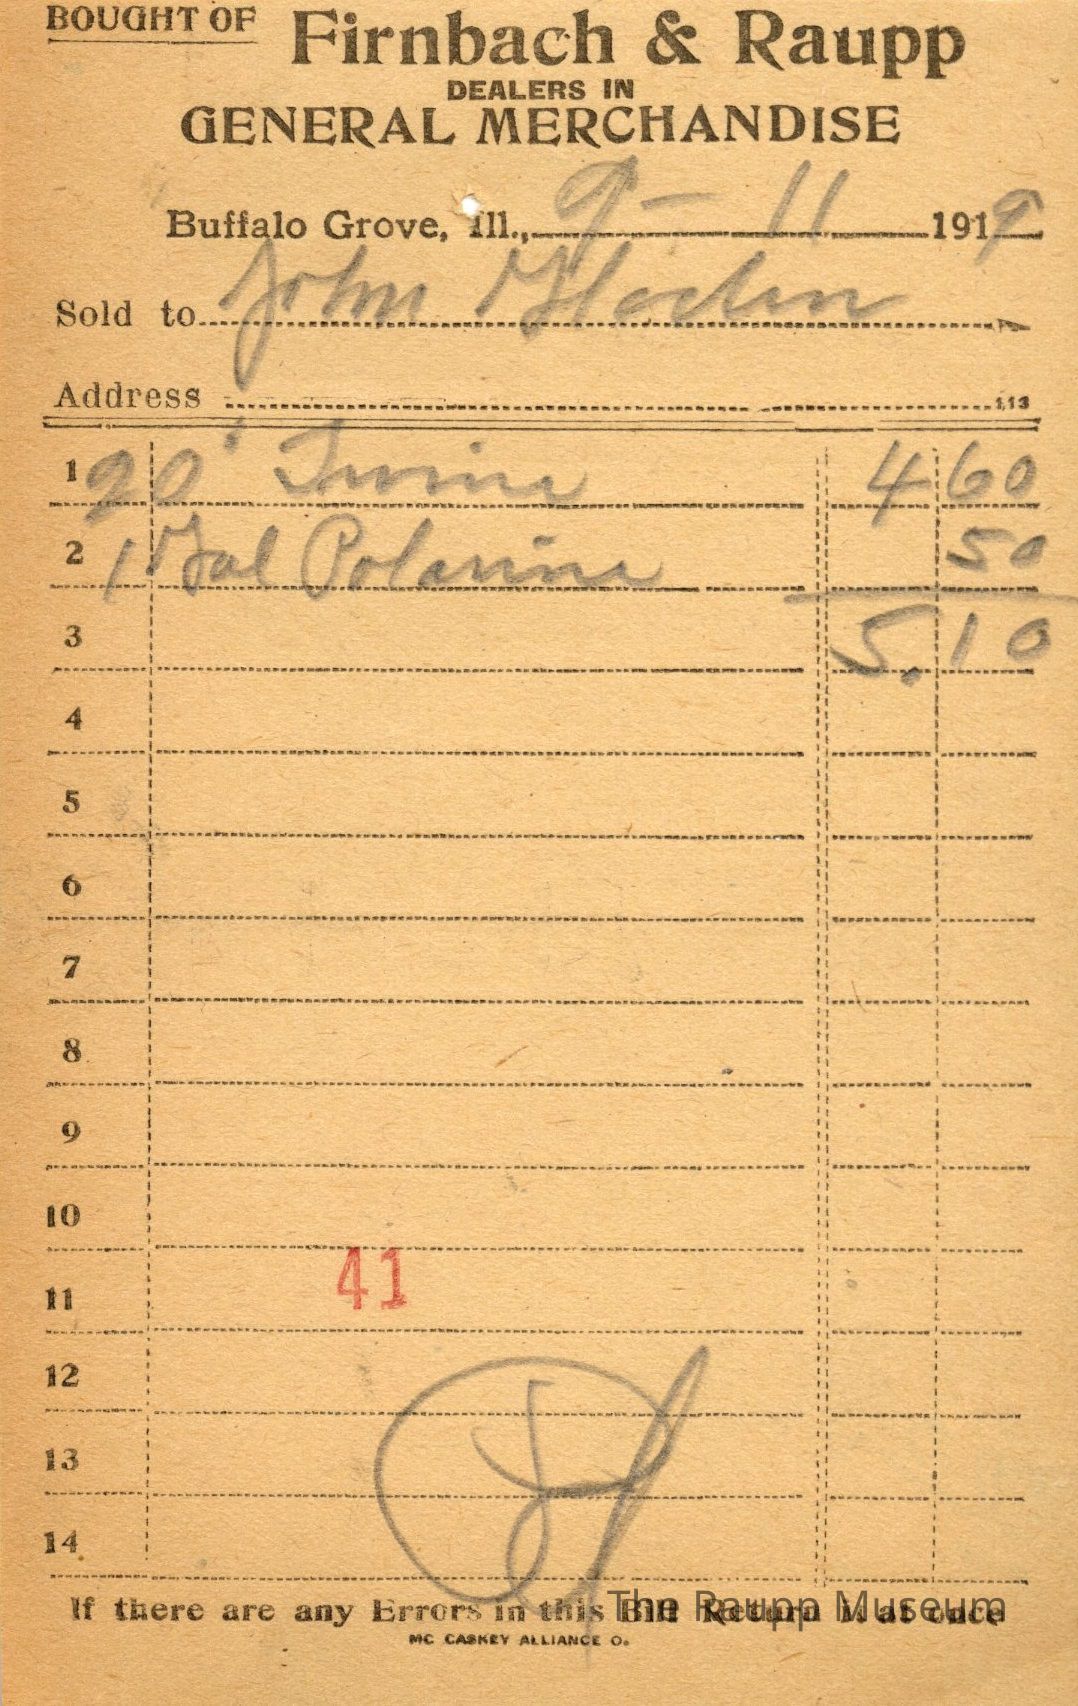 BOUGHT OF Firnbach & Raupp
DEALERS IN
GENERAL MERCHANDISE
Buffalo Grove, Ill., 9 - 11 1919
Sold to John
Address
113
1 20' Twine 4 60
2 1 Gal Polarine 50
3 5.10
4
5
6
7
8
9
10
11 41
12
13
14
If there are any Errors in this Bill Return it at once
The Raupp Museum
MC CASKEY ALLIANCE O.